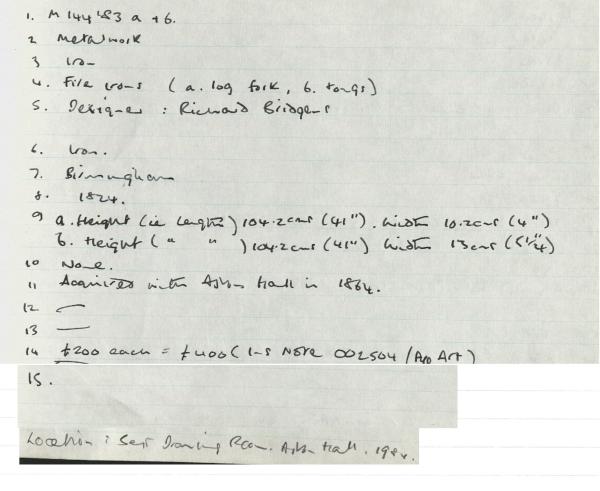 1. M 144'83 a + b.
2 Metalwork
3 Iron
4. Fire irons (a. log fork, b. tongs)
5. Designer : Richard Bridgens
6. Iron.
7. Birmingham
8. 1824.
9 a. Height (ie length) 104.2cms (41"). Width 10.2cms (4")
b. Height (" ") 104.2cms (41") Width 13cms (5 1/4")
10 None.
11 Acquired with Aston Hall in 1864.
12 —
13 —
14 £200 each = £400 (Ins Note 002504 /App Art)
15.
Location : Best Drawing Room. Aston Hall. 1984.